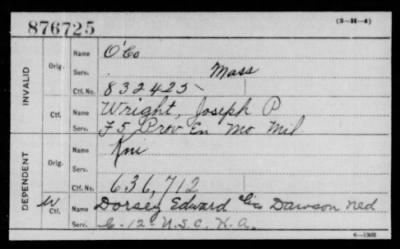 876725
(3-H-4)
INVALID
Orig.
Name O'Co
Serv. . Mass
Ctf. No. 832425
Ctf.
Name Wright, Joseph P
Serv. F5, Prov En Mo Mil
DEPENDENT
Orig.
Name
Serv.
Ctf. No. 636,712
W
Ctf.
Name Dorsey Edward Dawson Ned
Serv. 6-12-U.S.C. H.A.